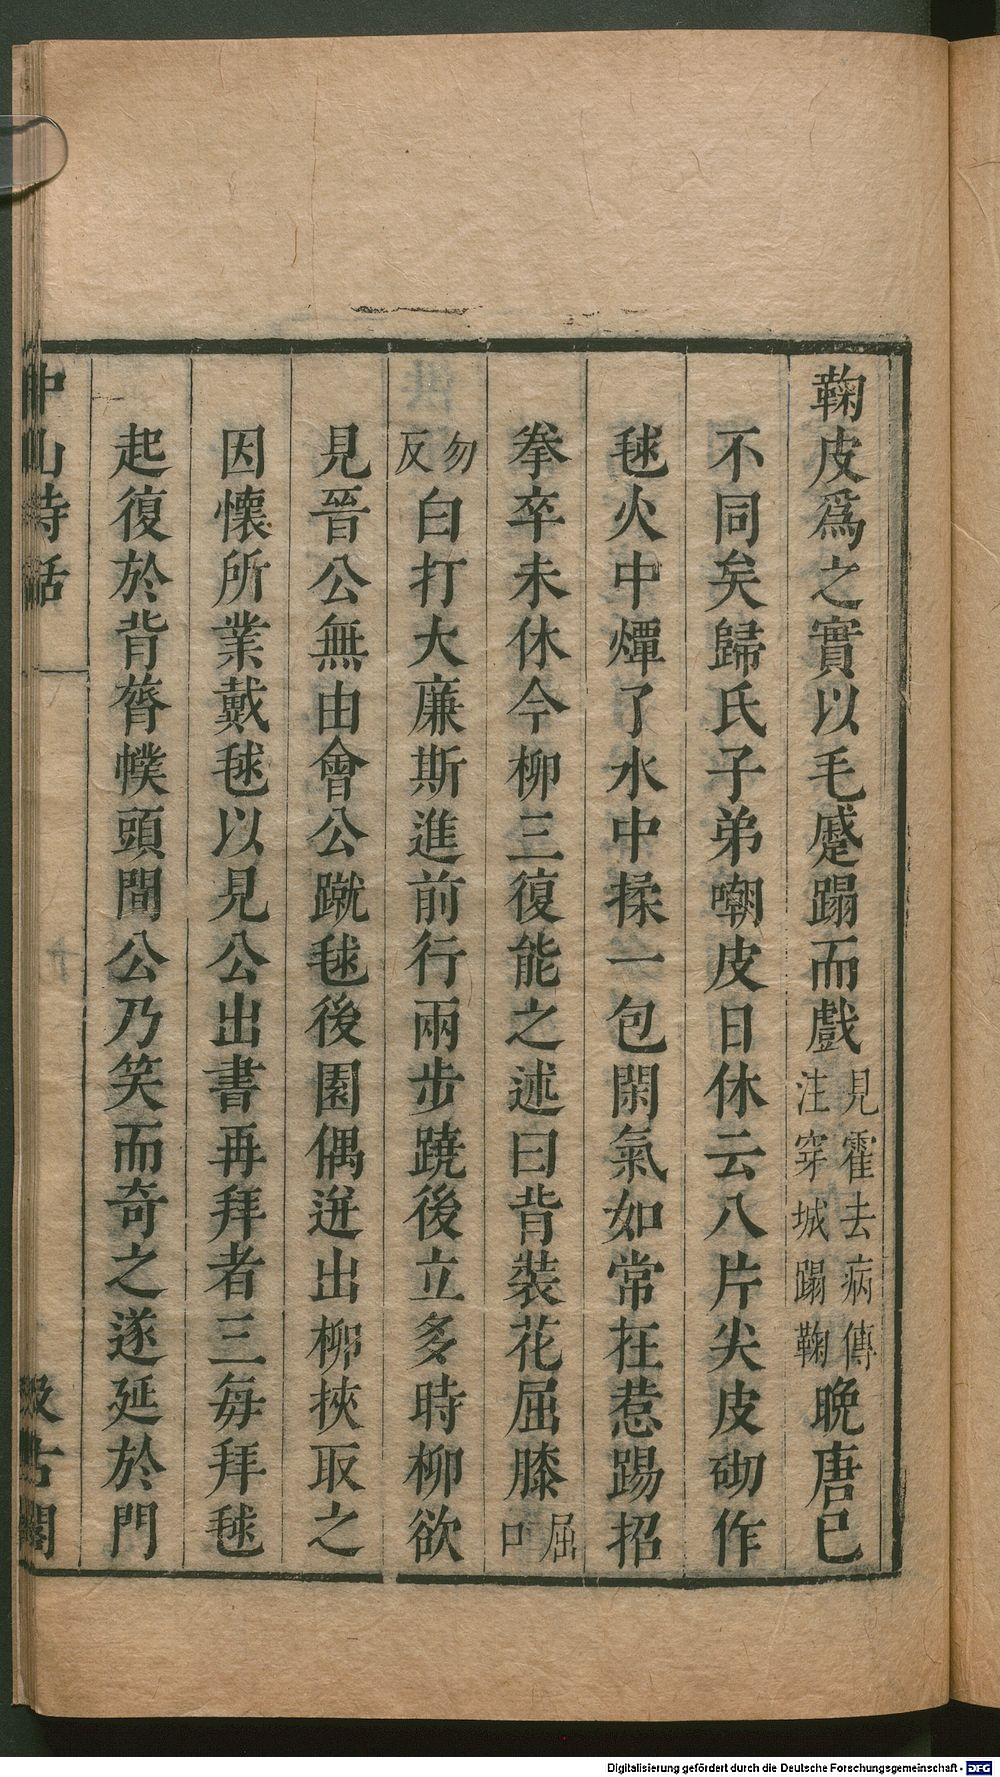 鞠皮爲之實以毛蹙蹋而戲見霍去病傳注穿城蹋鞠晚唐已
不同矣歸氏子弟嘲皮日休云八片尖皮砌作
毬火中燂了水中揉一包閑氣如常在惹踢招
拳卒未休今柳三復能之述曰背裝花屈膝屈口
勿反白打大廉斯進前行兩步蹺後立多時柳欲
見晉公無由會公蹴毬後園偶迸出柳挾取之
因懷所業戴毬以見公出書再拜者三每拜毬
起復於背膂幞頭間公乃笑而奇之遂延於門
中山詩話
汲古閣
Digitalisierung gefördert durch die Deutsche Forschungsgemeinschaft - DFG